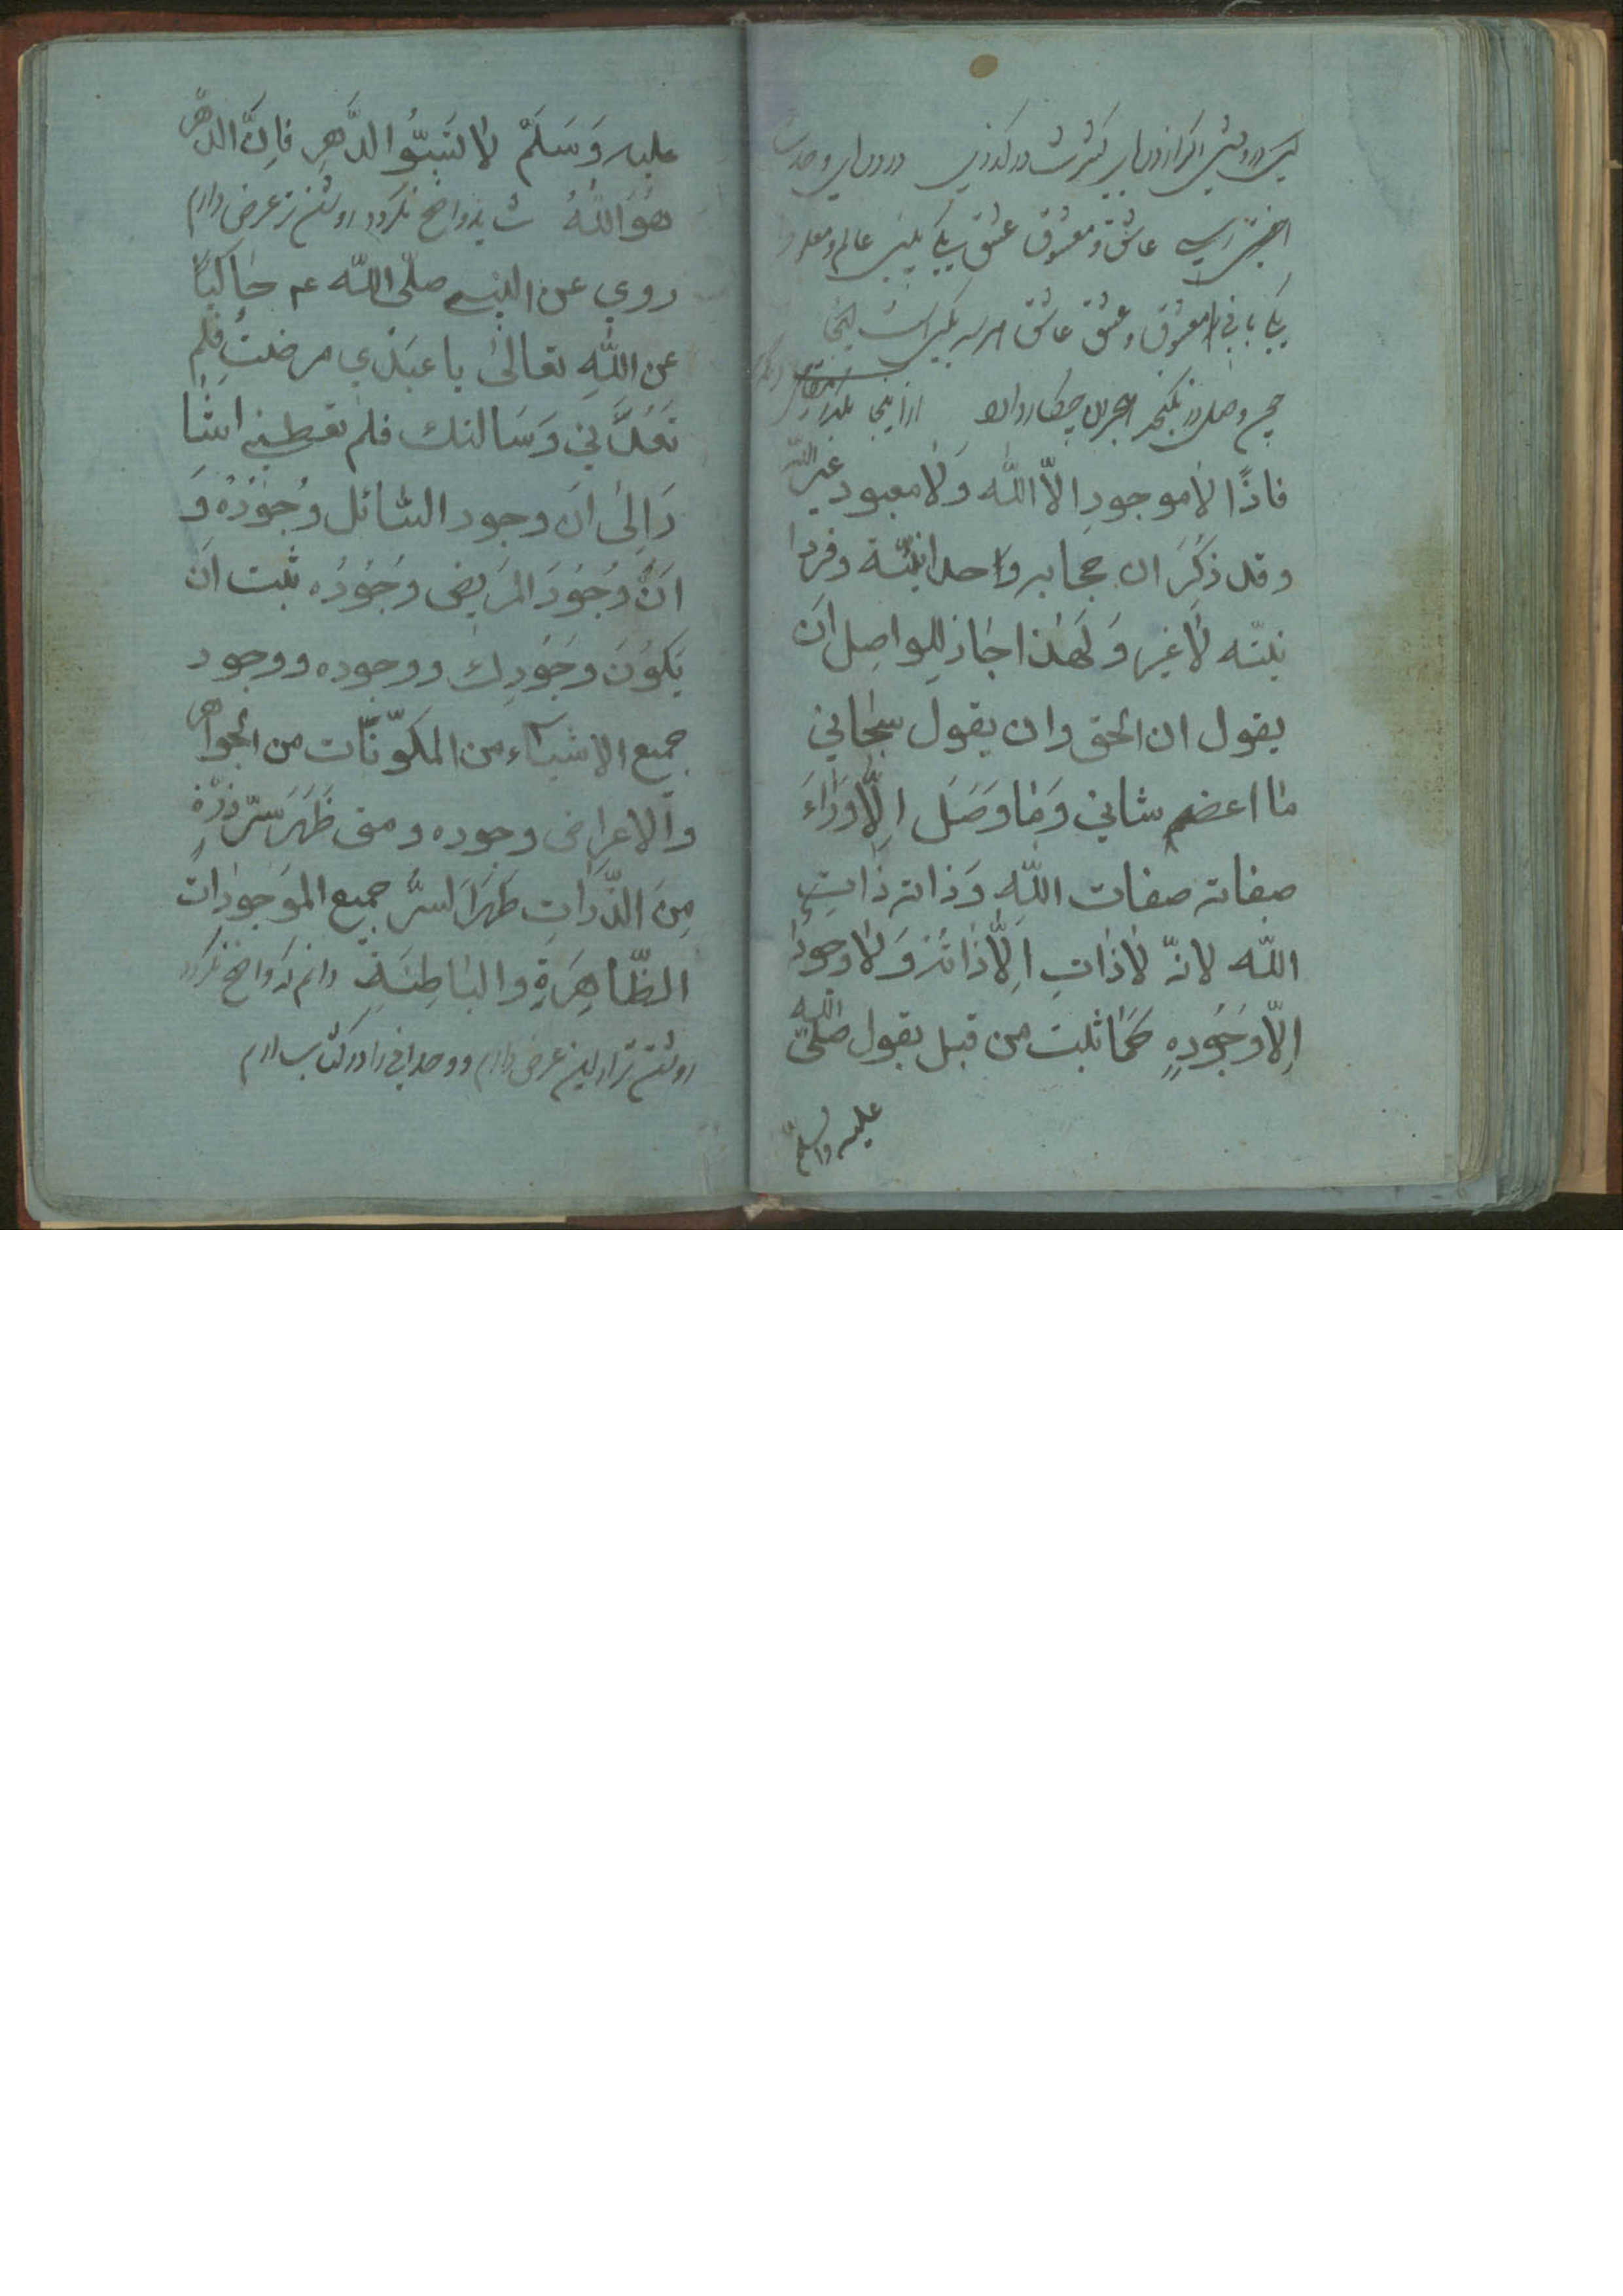 پس درویش اگر ازدریای کثرت درگذری در دریای وحدت
عاشق و معشوق عشق یکی بینی عالم و معلوم
یکی یابی معشوق و عشق عاشق هر سه یکیست اینجا
چون وصل در نگنجد هجران چکار دارد از اینجا
فاذًا لا موجودِ الّا اللّٰه وَلا معبود غیر اللّه
وقد ذكَرَ ان حجابه وَاحدانيّته وفردا
نيّته لَا غير وَلهٰذا اجَازَ للواصِل ان
يقول ان الحق وان يقول سبحاني
مٰا اعضم شاني وَمٰا وَصَلَ اِلّا وَرَاءَ
صفاته صفات اللّهِ وَذاته ذاتِ
اللّه لانهّ لَاذَاتِ اِلّا ذَاتهُ وَلا وجودَ
اِلّا وَجَودِهِ كمَا ثبت من قبل بقول صلّى اللّه
عليه وسلم
عليه وَسَلَمْ لا تسَبّوُ الدَّهرِ فاِنَّ الدّهر
هوَ اللّهُ شاید واضح نکردد روشن تر عرض دارم
روي عن النبى صلّى اللّه عم حٰاكيًا
عن اللّهِ تعالىٰ يا عبَدي مرضتُ فلم
تَعُدَّني وَسَالتك فلم تعطيني اشٰا
رَالىٰ انّ وجود السّائل وُجوُدُهُ وَ
انَّ وُجوُدَ المرَيضِ وَجوُدُه ثبت ان
يَكوُنَ وجَوُدِكَ ووجوده ووجود
جميع الاشيَاء من المكوّنات من الجواهر
والاعرٰاض وجوده ومتى ظَهَرَ سّر ذرّةٍ
مِنَ الذّرَاتِ ظهَرَ السرُّ جميع الموَجودات
الظّاهِرَةِ والبٰاطِنَةِ دانم که واضح نکردد
روشن تر از این عرض دارم و وحدانی را در کتاب ارم